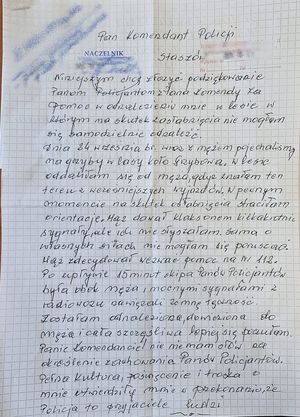 Pan Komendant Policji
Staszów
NACZELNIK
Niniejszym chcę złożyć podziękowanie
Panom Policjantom z Pana Komendy za
Pomoc w odnalezieniu mnie w lesie w
którym na skutek zasłabnięcia nie mogłam
się samodzielnie odnaleźć.
Dnia 24 września br. wraz z mężem pojechaliśmy
na grzyby w lasy koło Grzybowa, w lesie
oddaliłam się od męża, gdyż znałam ten
teren z wcześniejszych wyjazdów. W pewnym
momencie na skutek osłabnięcia straciłam
orientację. Mąż dawał klaksonem kilkakrotnie
sygnały, ale ich nie słyszałam. Sama o
własnych siłach nie mogłam się poruszać
Mąż zdecydował wezwać pomoc na nr 112.
Po upływie 15 minut ekipa Panów Policjantów
była obok męża i mocnymi sygnałami z
radiowozu nawiązali ze mną łączność.
Zostałam odnaleziona, dowieziona do
męża i cała szczęśliwa lepiej się poczułam.
Panie Komendancie! nie mam słów na
określenie zachowania Panów Policjantów.
Pełna kultura, poświęcenie i troska o
mnie utwierdziły mnie w przekonaniu, że
Policja to przyjaciele ludzi